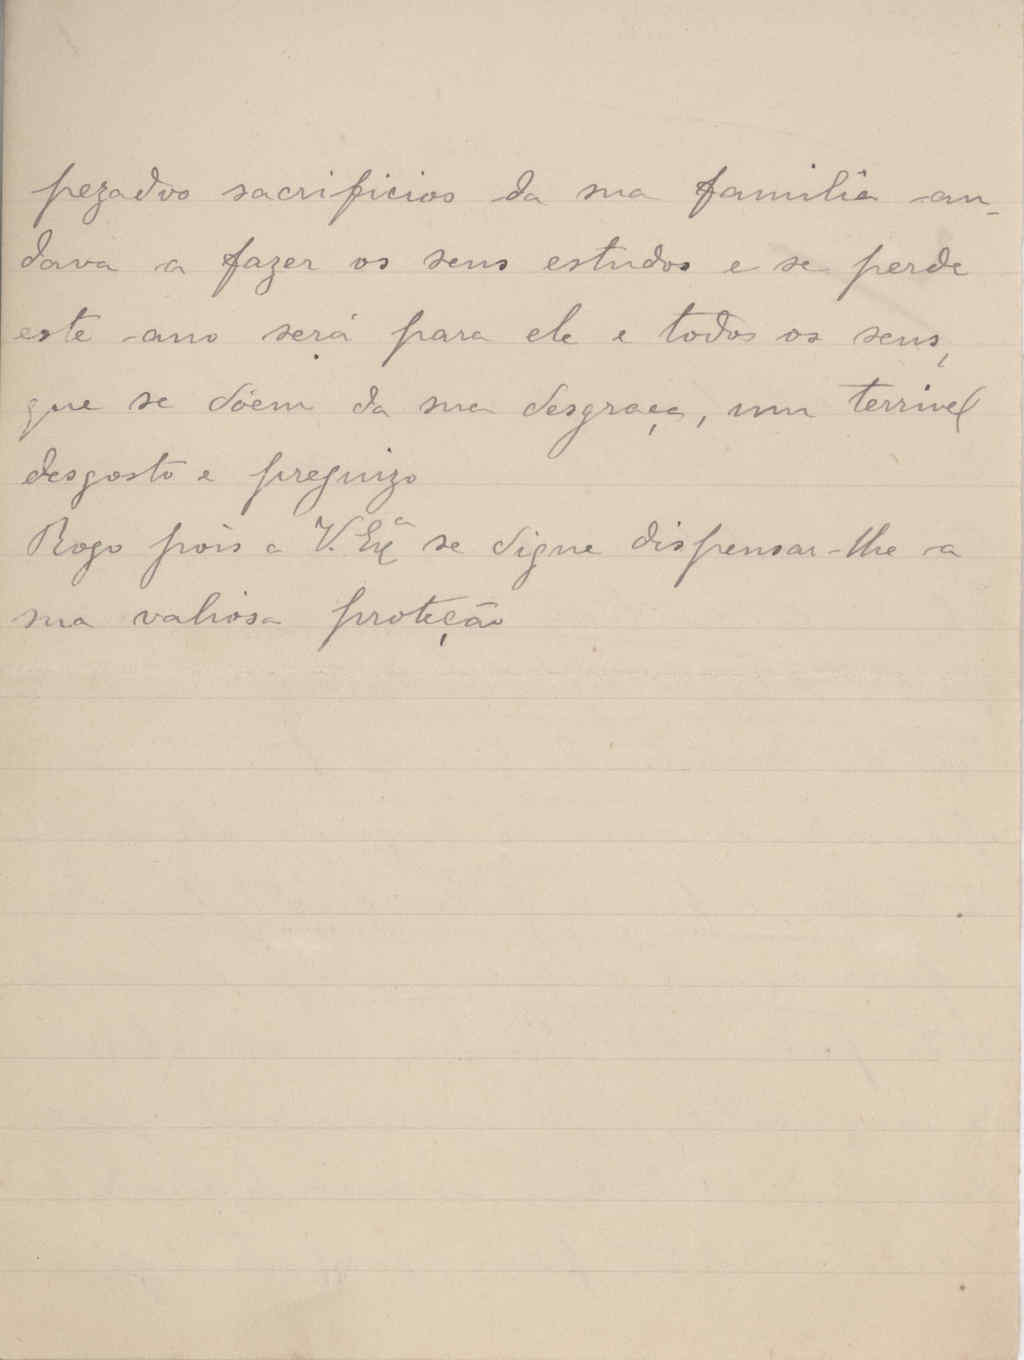 pezados sacrificios da sua familia an-
dava a fazer os seus estudos e se perde
este ano será para ele e todos os seus,
que se dóem da sua desgraça, um terrivel
desgosto e preguizo
Rogo pois a V. Exª se digne dispensar-lhe a
sua valiosa proteção